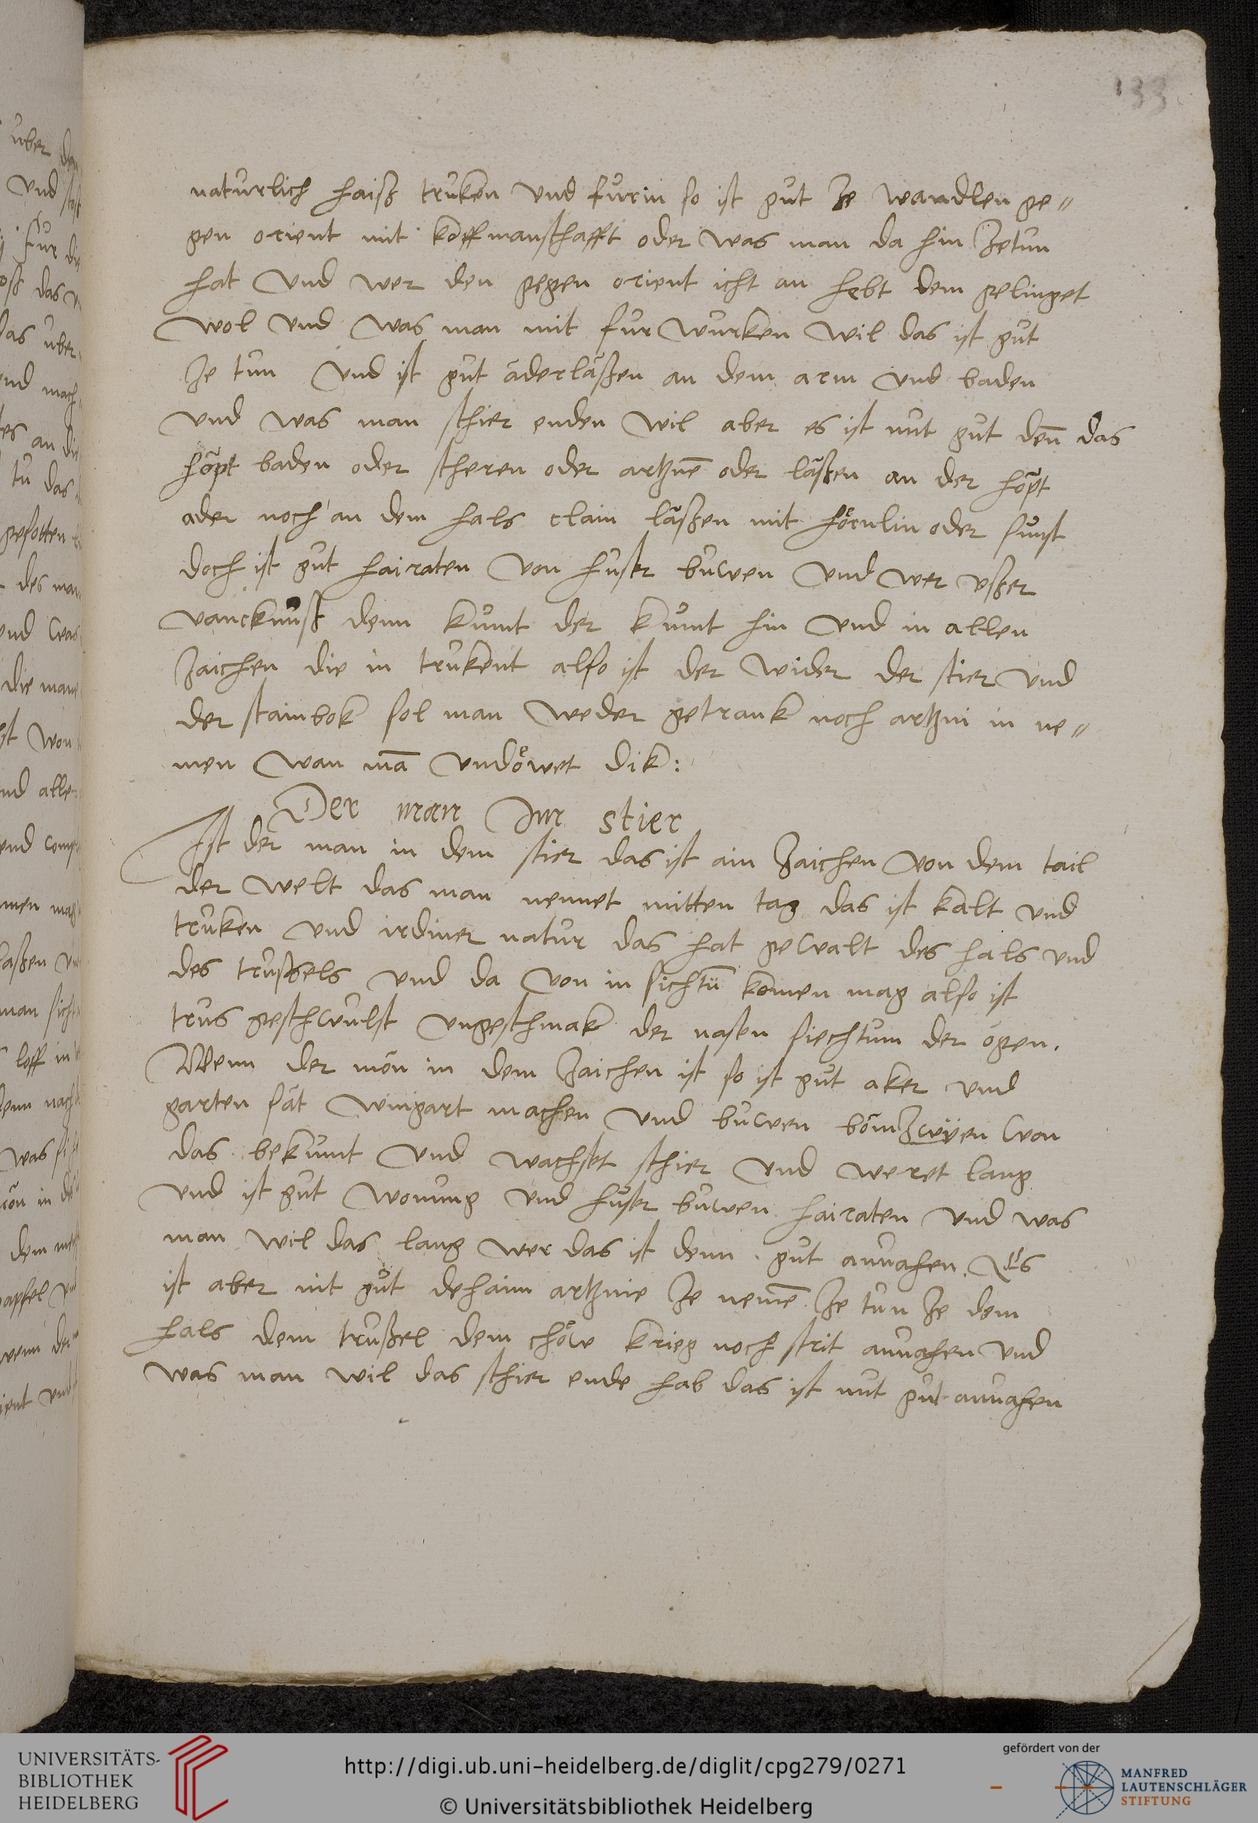 133
naturlich haiß truken und furin so ist gůt ze wandlen ge〃
gen orient mit koffmanschafft oder was man da hin ze tun
hat Und wer den gegen orient icht an hebt dem gelinget
wol Und was man mit fur wurken wil das ist gůt
ze tun Und ist gůt äderläßen an dem arm und baden
und was man schier enden wil aber es ist nut gůt deñ das
hopt baden oder scheren oder artznē oder läßen an der hopt
ader noch an dem hals clain läßen mit hörnlin oder sunst
doch ist gůt hairaten von huser buwen und wer usser
vancknuß denn kumt der kumt hin Und in allen
zaichen die in trukent also ist der wider der stier und
der stainbok sol man weder getrank noch artzni in ne〃
men wan mā undöwet dik :
Der man Im stier
Ist der man in dem stier das ist ain zaichen von dem tail
der welt das man nennet mitten tag das ist kalt und
truken und irdiner natur das hat gewalt des hals und
des trussels und da von in sichtū komen mag also ist
trus geschwulst ungeschmak der nasen siechtum der ogen .
Wenn der mon in dem zaichen ist so ist gůt aker und
garten sät wingart machen und buwen bömzwyen wan
das bekumt Und wachset schier und weret lang
und ist gůt wonung und huser buwen hairaten und was
man wil das lang wer das ist denn gůt anvahen . Es
ist aber nit gůt dehain artznie ze nemē ze tun ze dem
hals dem trussel dem chöle krieg noch strit anvahen und
was man wil das schier ende hab das ist nut gůt anvahen
UNIVERSITÄTS-
BIBLIOTHEK
HEIDELBERG
http://digi.ub.uni-heidelberg.de/diglit/cpg279/0271
© Universitätsbibliothek Heidelberg
gefördert von der
MANFRED
LAUTENSCHLÄGER
STIFTUNG